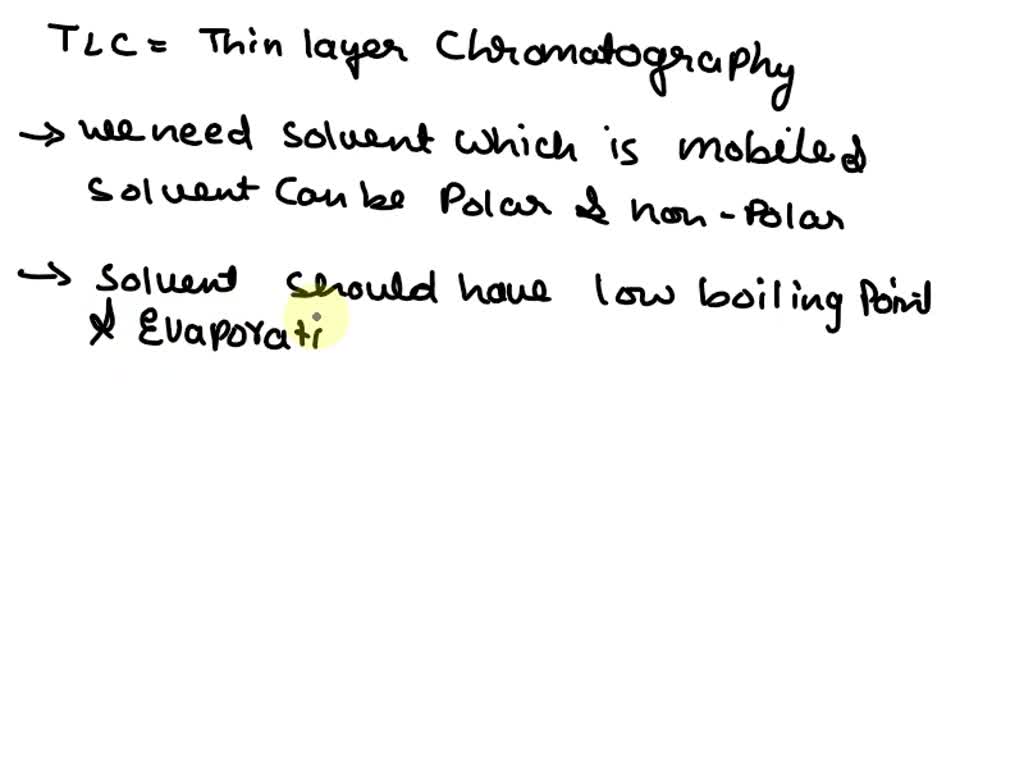 TLC = Thin layer Chromatography
→ we need solvent which is mobile &
solvent can be Polar & non-Polar
→ solvent should have low boiling Point
& Evaporati